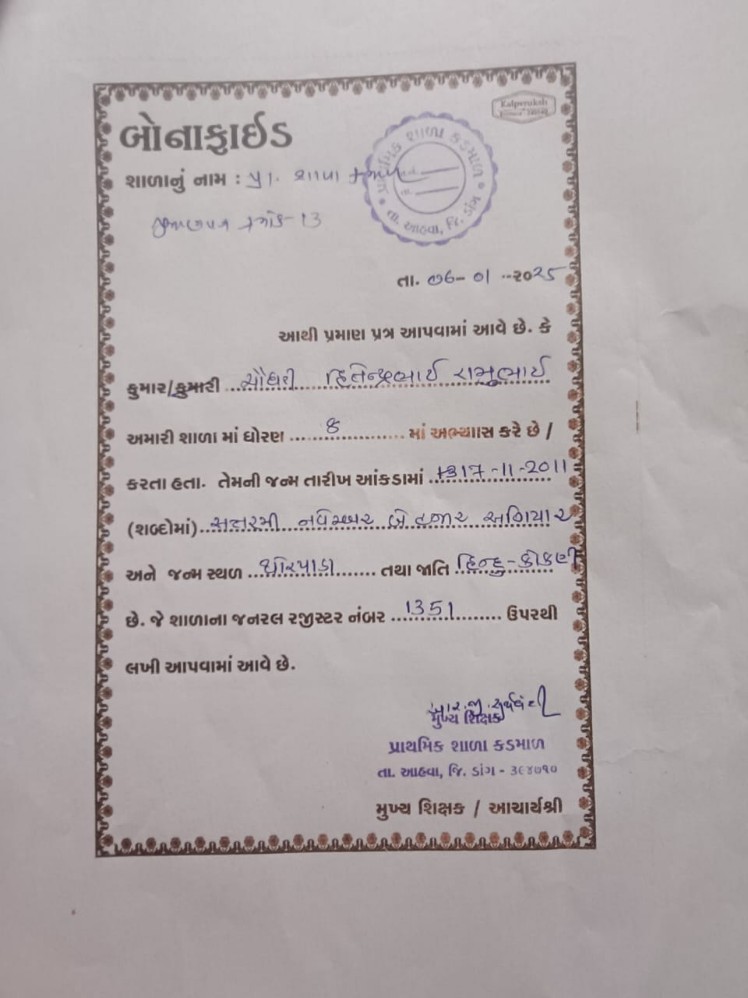 Kalpvruksh
બોનાફાઈડ
પ્રાથમિક શાળા કડમાળ
તા. આહવા, જિ. ડાંગ
શાળાનું નામ : પ્રા. શાળા કડમાળ
ક્રમાંક-13
તા. 06-01-2025
આથી પ્રમાણ પત્ર આપવામાં આવે છે. કે
કુમાર/કુમારી ચૌધરી હિતેન્દ્રભાઈ રામુભાઈ
અમારી શાળા માં ધોરણ 8 માં અભ્યાસ કરે છે /
કરતા હતા. તેમની જન્મ તારીખ આંકડામાં 17-11-2011
(શબ્દોમાં) સત્તરમી નવેમ્બર બે હજાર અગિયાર
અને જન્મ સ્થળ ધોરપાડા તથા જાતિ હિન્દુ-કોકણી
છે. જે શાળાના જનરલ રજીસ્ટર નંબર 1351 ઉપરથી
લખી આપવામાં આવે છે.
મુખ્ય શિક્ષક
પ્રાથમિક શાળા કડમાળ
તા. આહવા, જિ. ડાંગ - ૩૯૪૭૧૦
મુખ્ય શિક્ષક / આચાર્યશ્રી